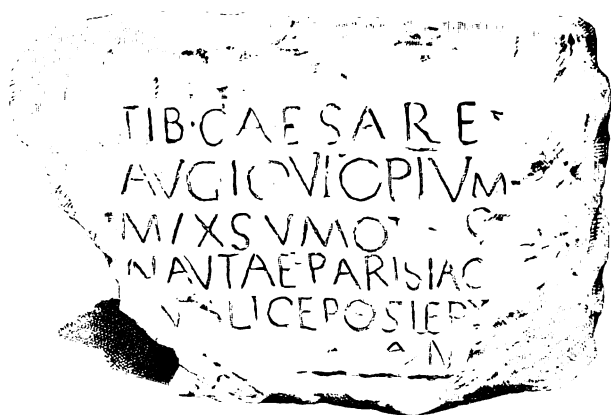 TIB·CAESARE·
AVG IOVI OPTVM
MAXSVMO
NAVTAE·PARISIAC
BLICE POSIERV
N